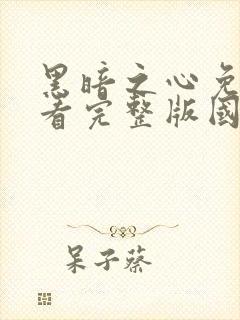 黑暗之心免
看完整版國
呆子蔡